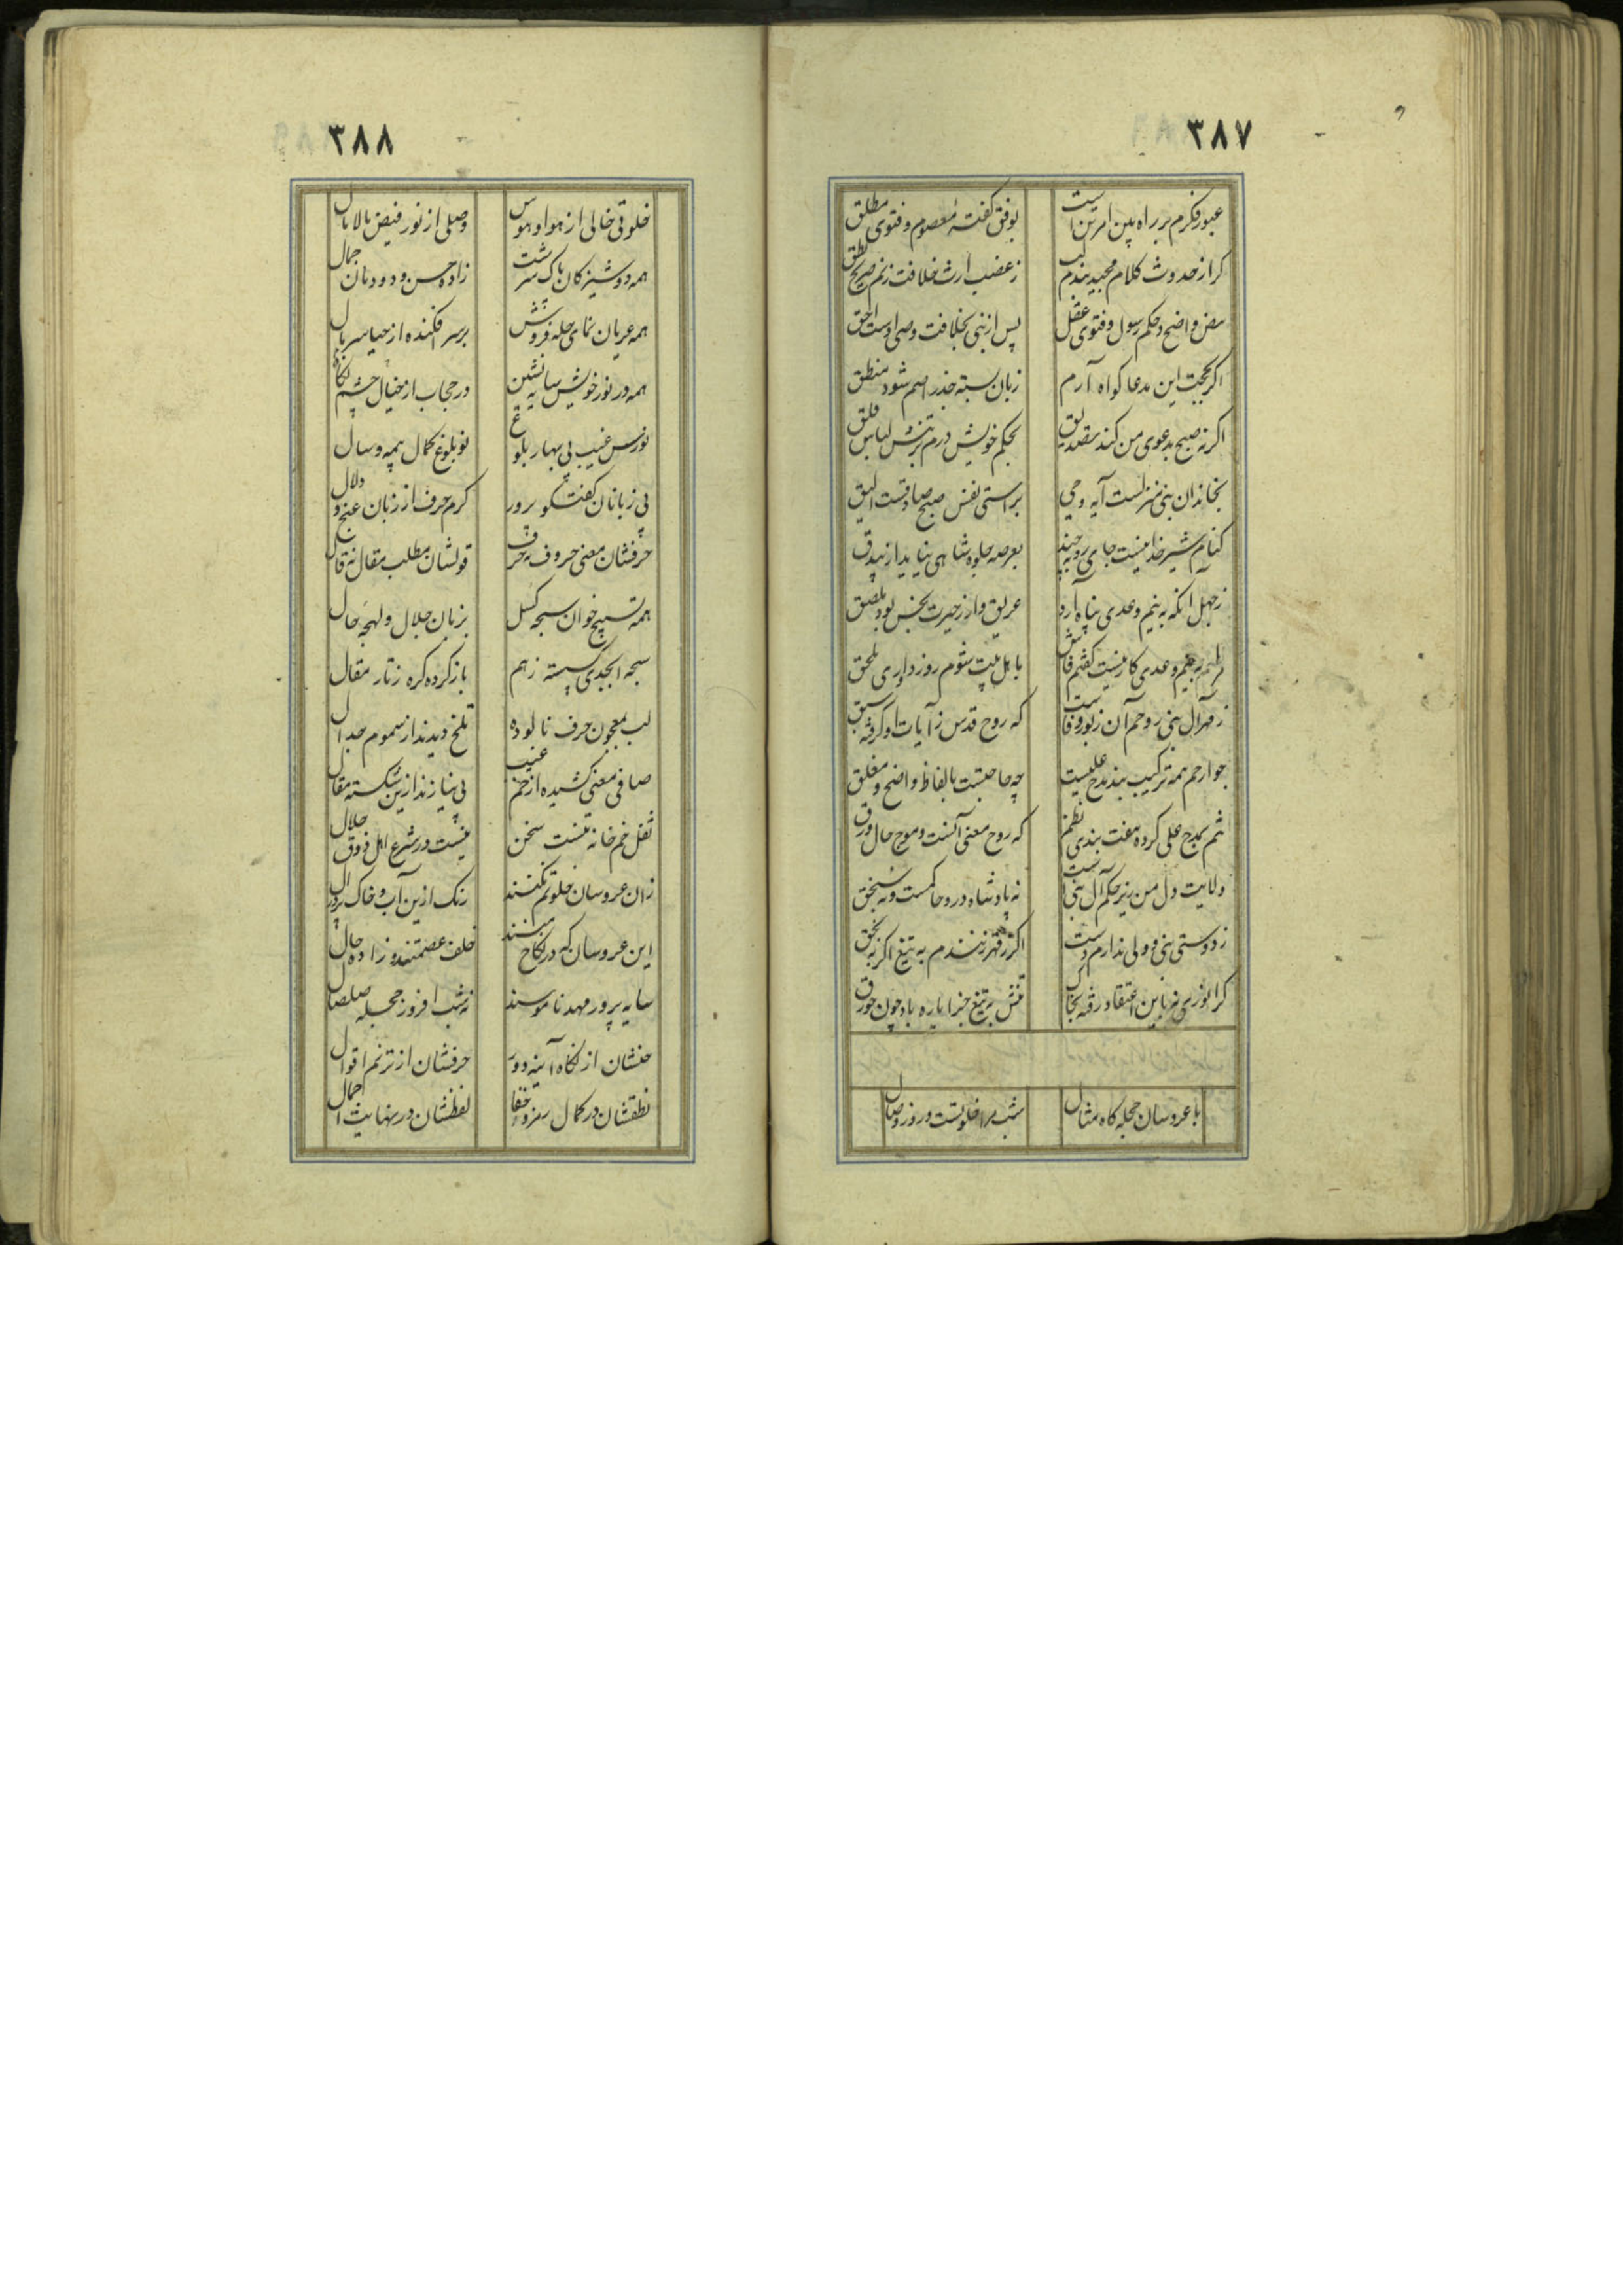 ۳۸۷
عبور فکرم بر راه بین امرین است بوفق گفتهٔ معصوم و فتوی مطلق
گر از حدوث کلام مجید بندم لب ز غضب ارث خلافت زنم صریح نطق
بنص واضح و حکم رسول و فتوی عقل پس از نبی بخلافت وصی اوست احق
اگر بحجت این مدعا گواه آرم زبان بسته جذر اصم شود منطق
اگر نه صبح بدعوی من کند تصدیق بحکم خویش درم بر تنش لباس فلق
بخاندان نبی منزلست آیه وحی براستی نفس صبح صادقست الیق
کنام شیر خدا نیست جای روبه چند بعرصه جلوه شاهی نیاید از بیدق
ز جهل آنکه به تیم و عدی پناه آرد غریق وار ز حیرت بخس بود ملصق
مرا بتیم و عدی کار نیست گفتم فاش باهل بیت شوم روز داوری ملحق
ز قهر آل نبی روحم آن زبور وفاست که روح قدس ز آیات او گرفته سبق
جوارحم همه ترکیب بند مدح علیست چه حاجتست بالفاظ واضح و مغلق
تنم بمدح علی کرده هفت بندی نظم که روح معنی آنست و موج حال ورق
ولایت دل من زیر حکم آل نبیست نه پادشاه درو حاکمست و نه سنجق
ز دوستی نبی و ولی ندارم دست اگر ز قهر زنندم به تیغ اگر به بخق
کرا بوزی نه باین اعتقاد رفته بخاک تنش بتیغ جزا پاره باد چون جوزق
با عروسان حجله گاه مثال شب مرا خلوتست و روز وصال
۳۸۸
خلوتی خالی از هوا و هوس وصلی از نور فیض مالامال
همه دوشیزگان پاک سرشت زاده حسن و دودمان جمال
همه عریان نمای حله فروش بر سر افکنده از حیا سربال
همه در نور خویش سایه نشین در حجاب از خیال چشم نکال
نورس غیب بی بهار بلوغ نو بلوغ کمال بی مه و سال
بی زبانان گفتگو پرور گرم حرف از زبان غنج و دلال
حرفشان معنی حروف نه حرف قولشان مطلب مقال نه قال
همه تسبیح خوان سبحه گسل بزبان جلال و لهجه حال
سبحه ابجدی گسسته ز هم باز کرده گره ز تار مقال
لب بمعجون حرف نالوده تلخ دیدند از سموم جدال
صافی معنی کشیده از خم غیب بی نیازند ازین شکسته مقال
ثفل خم خانه تنست سخن نیست در شرع اهل ذوق حلال
زان عروسان خلوتم نکنند رنگ ازین آب و خاک پر پر ال
این عروسان که در نکاح منند خلف عصمتند و زاده حال
سایه پرور مهد ناموسند نه شب افروز حجله صلصال
حسنشان از نگاه آینه دور حرفشان از ترنم اقوال
نطقشان در کمال رمز و خفا لفظشان در نهایت اجمال